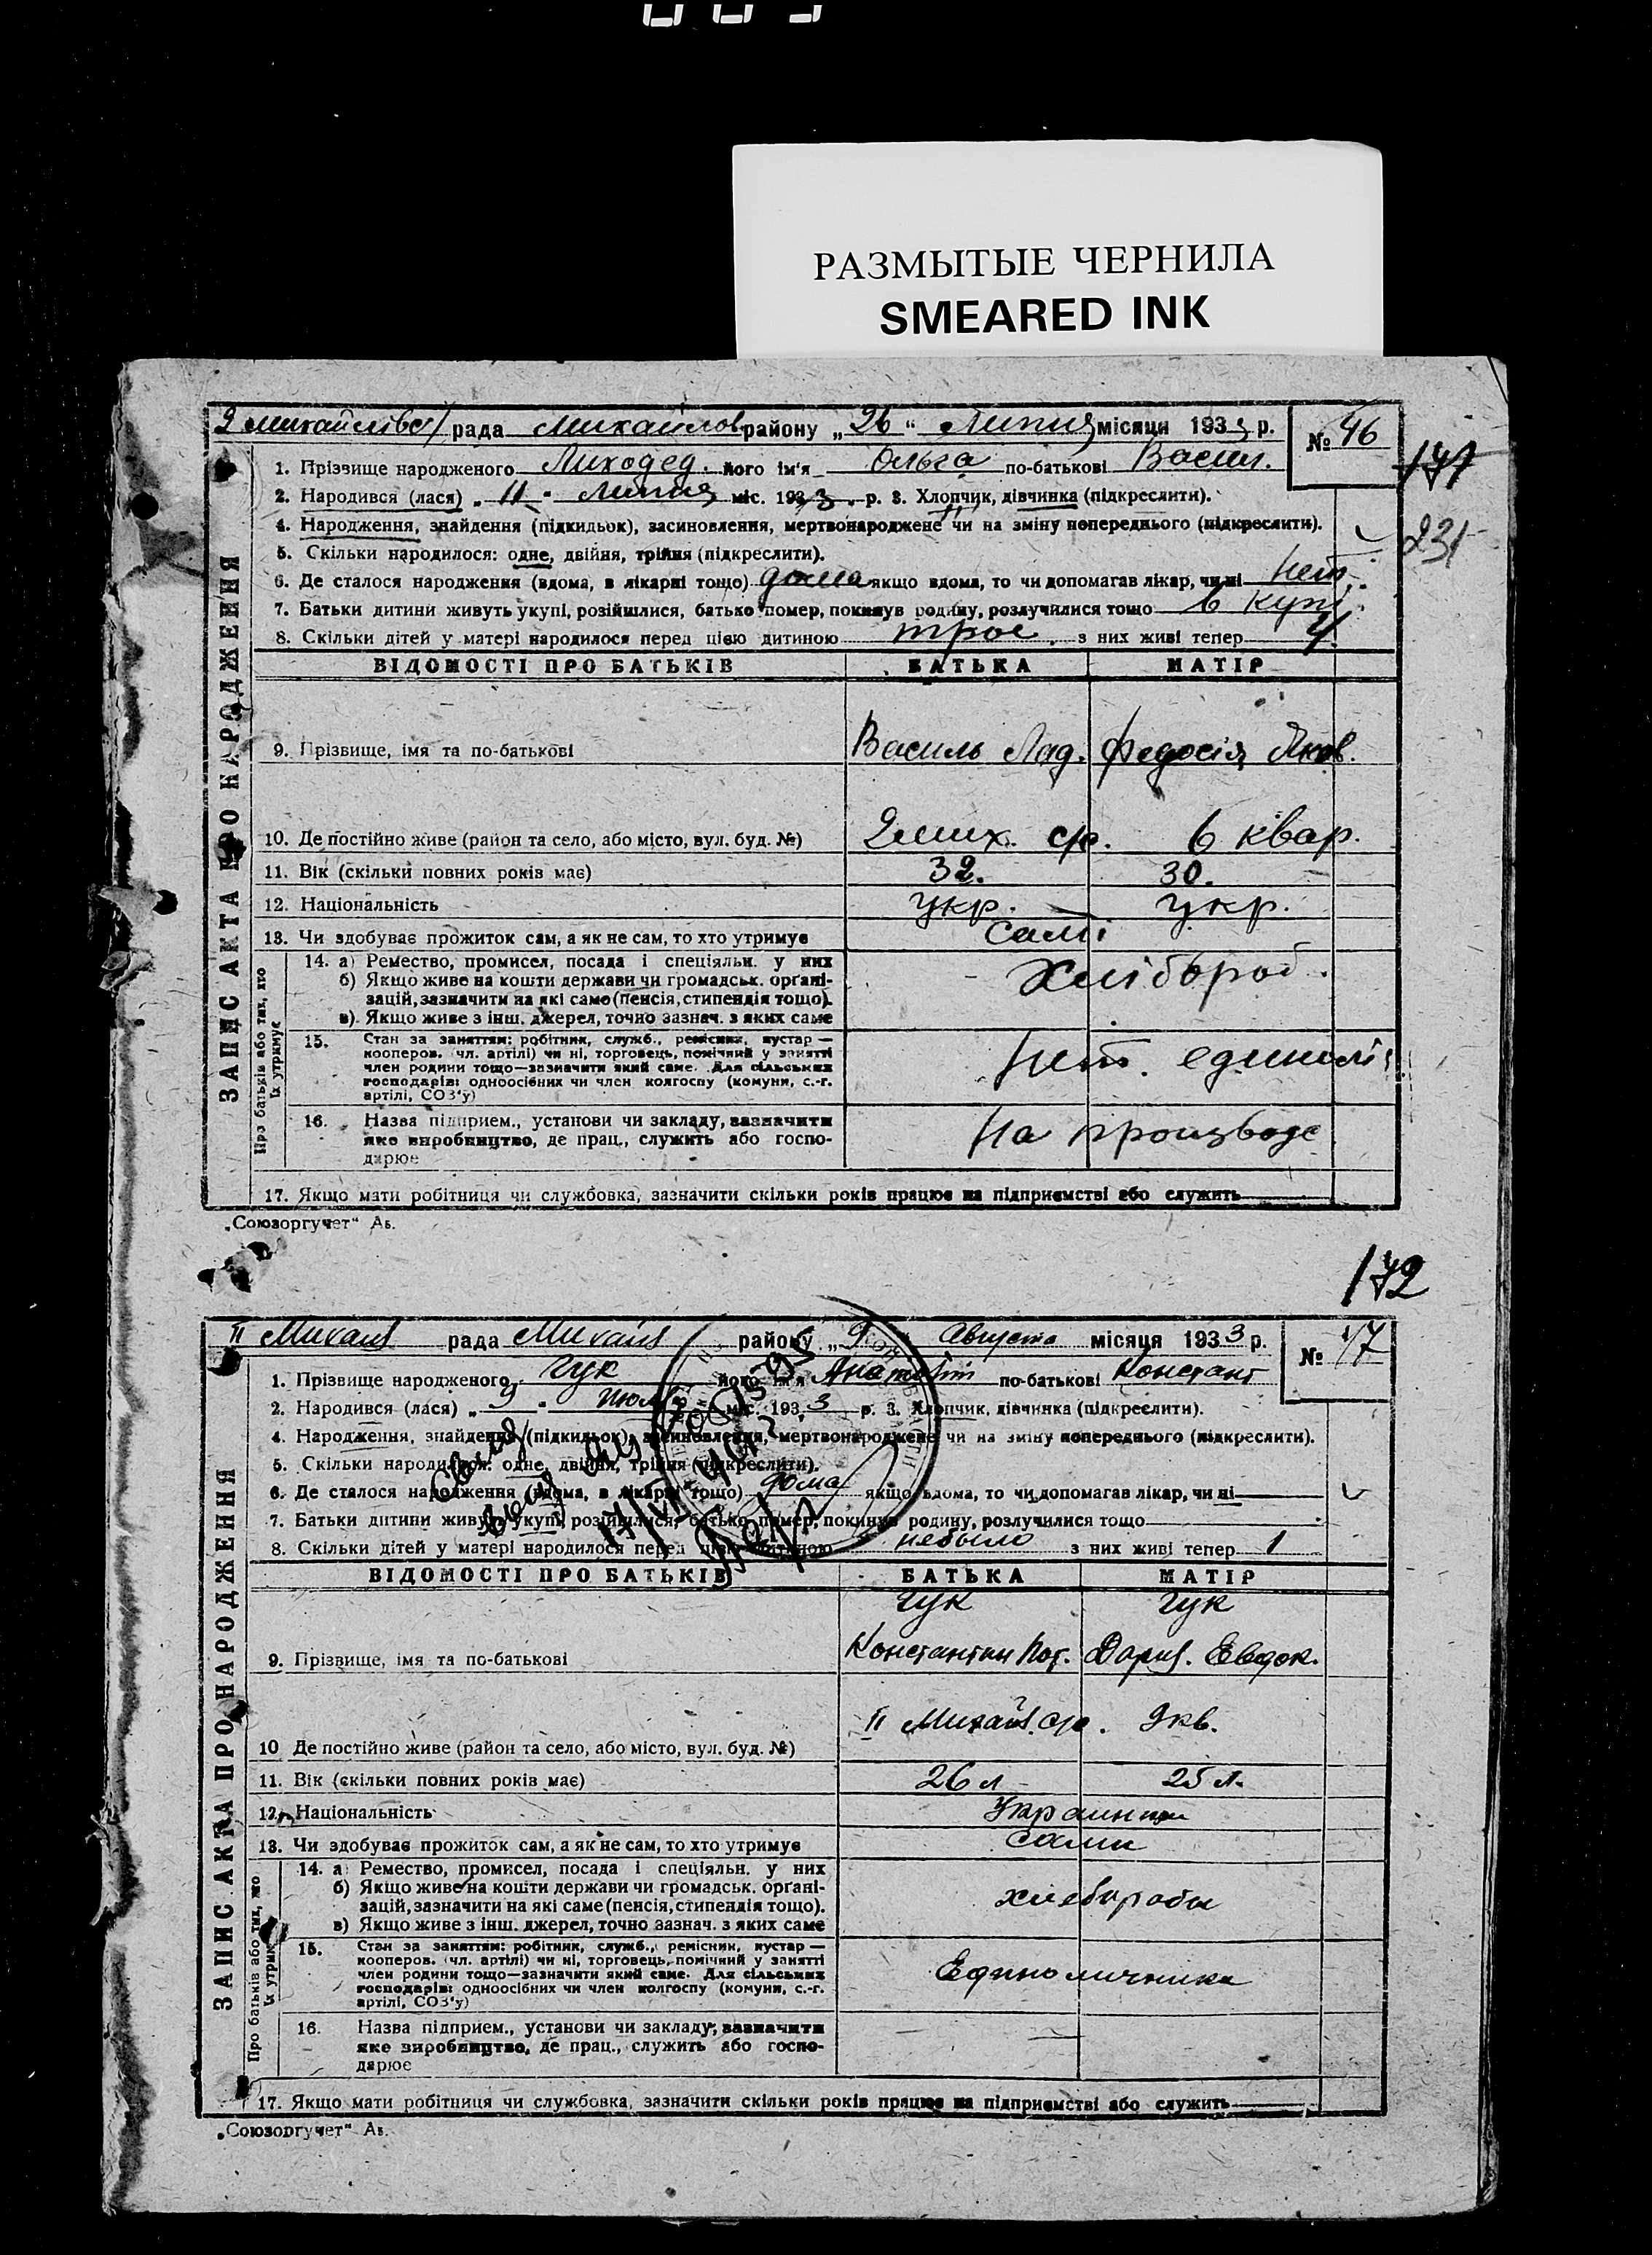 РАЗМЫТЫЕ ЧЕРНИЛА
SMEARED INK
рада Михайлов району „26“ Липня місяця 1933 р. № 46
171
1. Прізвище народженого Лиходед. його ім'я Ольга по-батькові Васил.
2. Народився (лася) „11“ Липня міс. 1933 р. 3. Хлопчик, дівчинка (підкреслити).
4. Народження, знайдення (підкидьок), засиновлення, мертвонароджене чи на зміну попереднього (підкреслити).
231
5. Скільки народилося: одне, двійня, трійня (підкреслити).
6. Де сталося народження (вдома, в лікарні тощо) дома якщо вдома, то чи допомагав лікар, чи ні нет
7. Батьки дитини живуть укупі, розійшлися, батько помер, покинув родину, розлучилися тощо в купі
8. Скільки дітей у матері народилося перед цією дитиною трое з них живі тепер 4
ВІДОМОСТІ ПРО БАТЬКІВ БАТЬКА МАТІР
9. Прізвище, імя та по-батькові Василь Лад. Федосія Яков.
10. Де постійно живе (район та село, або місто, вул. буд. №) 2 мих. с/р. 6 квар.
11. Вік (скільки повних років має) 32. 30.
12. Національність укр. укр.
13. Чи здобуває прожиток сам, а як не сам, то хто утримує самі
14. а) Ремество, промисел, посада і спеціяльн. у них
б) Якщо живе на кошти держави чи громадськ. орґані-
зацій, зазначити на які саме (пенсія, стипендія тощо).
в). Якщо живе з інш. джерел, точно зазнач. з яких саме
Хлібороб.
15. Стан за заняттям: робітник, служб., ремісник, кустар —
кооперов. (чл. артілі) чи ні, торговець, помічний у занятті
член родини тощо—зазначити який саме. Для сільських
господарів: одноосібних чи член колгоспу (комуни, с.-г.
артілі, СОЗ'у)
нет.
16. Назва підприєм., установи чи закладу, зазначити
яке виробництво, де прац., служить або госпо-
дарює
На производе
17. Якщо мати робітниця чи службовка, зазначити скільки років працює на підприємстві або служить
ЗАПИС АКТА ПРО НАРОДЖЕННЯ
Про батьків або тих, хто
їх утримує
„Союзоргучет“
172
II Михайл рада Михайл району „9 Августа місяця 1933 р. № 47
1. Прізвище народженого Гук його ім'я Анатолій по-батькові Констант
2. Народився (лася) „ июля міс. 1933 р. 3. Хлопчик, дівчинка (підкреслити).
4. Народження, знайдення (підкидьок), засиновлення, мертвонароджене чи на зміну попереднього (підкреслити).
5. Скільки народилося: одне, двійня, трійня (підкреслити).
6. Де сталося народження (вдома, в лікарні тощо) дома якщо вдома, то чи допомагав лікар, чи ні
7. Батьки дитини живуть укупі, розійшлися, батько помер, покинув родину, розлучилися тощо
8. Скільки дітей у матері народилося перед цією дитиною небыло з них живі тепер 1
ВІДОМОСТІ ПРО БАТЬКІВ БАТЬКА МАТІР
Гук Гук
9. Прізвище, імя та по-батькові Константин Дария. Евдок.
10 Де постійно живе (район та село, або місто, вул. буд. №) II Михайл. с/р. 9 кв.
11. Вік (скільки повних років має) 26 л 25 л.
12. Національність Украинци
13. Чи здобуває прожиток сам, а як не сам, то хто утримує сами
14. а) Ремество, промисел, посада і спеціяльн. у них
б) Якщо живе на кошти держави чи громадськ. орґані-
зацій, зазначити на які саме (пенсія, стипендія тощо).
в) Якщо живе з інш. джерел, точно зазнач. з яких саме
хлебороби
15. Стан за заняттям: робітник, служб., ремісник, кустар —
кооперов. (чл. артілі) чи ні, торговець, помічний у занятті
член родини тощо—зазначити який саме. Для сільських
господарів: одноосібних чи член колгоспу (комуни, с.-г.
артілі, СОЗ'у)
Единоличники
16. Назва підприєм., установи чи закладу, зазначити
яке виробництво, де прац., служить або госпо-
дарює
17. Якщо мати робітниця чи службовка, зазначити скільки років працює на підприємстві або служить
ЗАПИС АКТА ПРО НАРОДЖЕННЯ
Про батьків або тих, хто
їх утримує
„Союзоргучет“